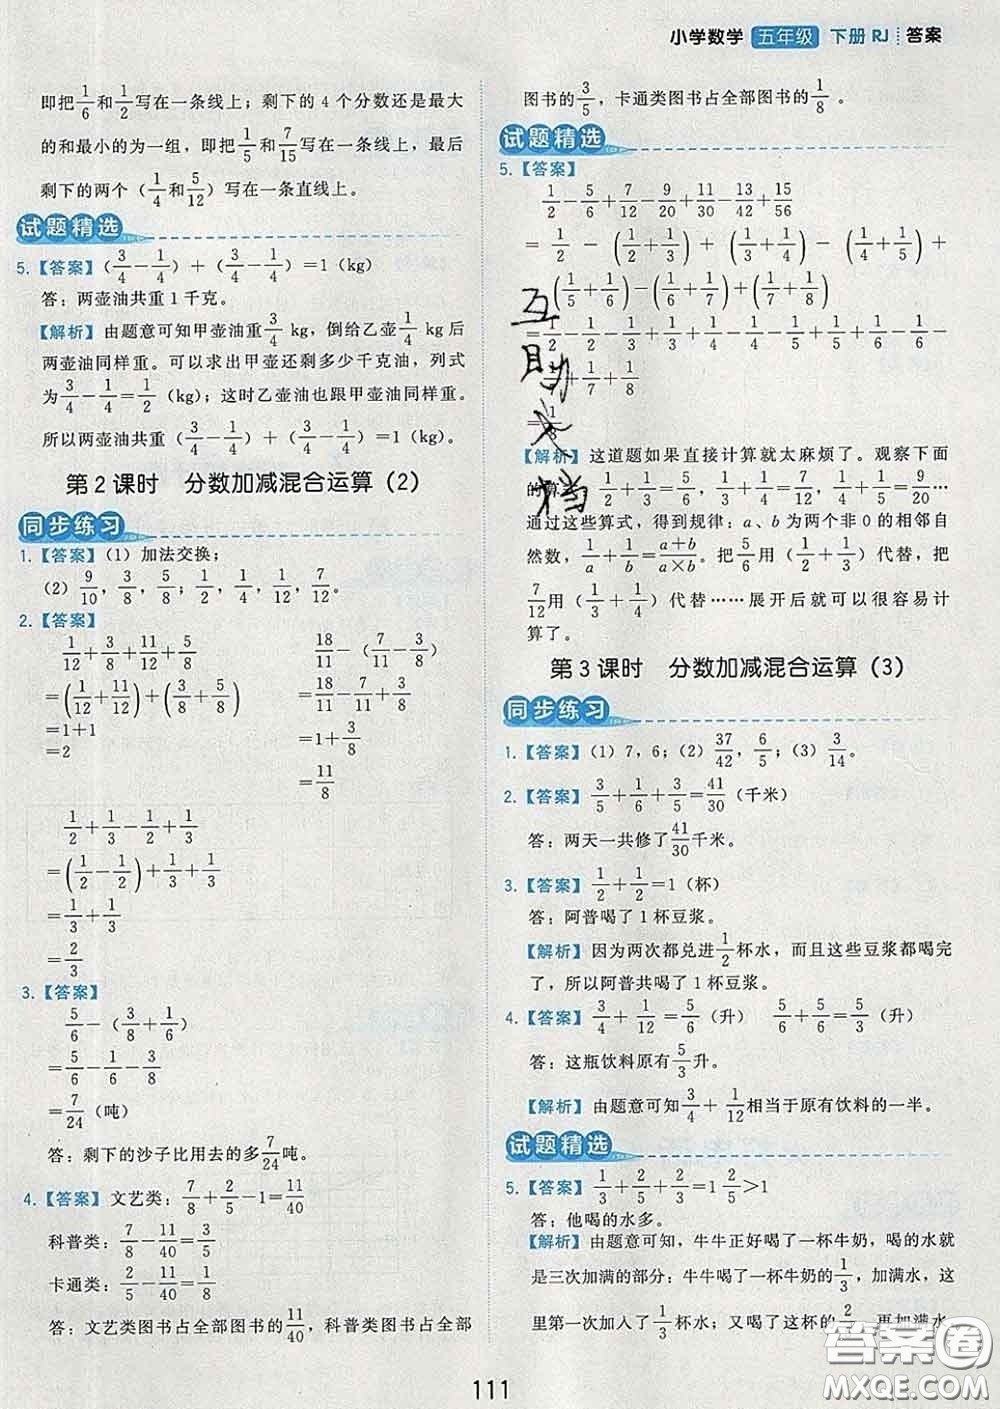 小学数学 五年级 下册 RJ 答案
即把1/6和1/2写在一条线上；剩下的 4 个分数还是最大
的和最小的为一组，即把1/5和7/15写在一条直线上，最后
剩下的两个（1/4和5/12）写在一条直线上。
试题精选
5.【答案】（3/4－1/4）＋（3/4－1/4）＝1（kg）
答：两壶油共重 1 千克。
【解析】由题意可知甲壶油重3/4 kg，倒给乙壶1/4 kg 后
两壶油同样重。可以求出甲壶还剩多少千克油，列式
为3/4－1/4＝1/2（kg）；这时乙壶油也跟甲壶油同样重。
所以两壶油共重（3/4－1/4）＋（3/4－1/4）＝1（kg）。
第 2 课时　分数加减混合运算（2）
同步练习
1.【答案】（1）加法交换；
（2）9/10，3/8，5/8；1/2，1/4，1/12，7/12。
2.【答案】
1/12＋3/8＋11/12＋5/8
＝(1/12＋11/12)＋(3/8＋5/8)
＝1＋1
＝2
18/11－(7/11－3/8)
＝18/11－7/11＋3/8
＝1＋3/8
＝11/8
1/2＋1/3－1/2＋1/3
＝(1/2－1/2)＋1/3＋1/3
＝1/3＋1/3
＝2/3
3.【答案】
5/6－（3/8＋1/6）
＝5/6－1/6－3/8
＝7/24（吨）
答：剩下的沙子比用去的多7/24吨。
4.【答案】文艺类：7/8＋2/5－1＝11/40
科普类：7/8－11/40＝3/5
卡通类：2/5－11/40＝1/8
答：文艺类图书占全部图书的11/40，科普类图书占全部
图书的3/5，卡通类图书占全部图书的1/8。
试题精选
5.【答案】
1/2－5/6＋7/12－9/20＋11/30－13/42＋15/56
＝1/2－(1/2＋1/3)＋(1/3＋1/4)－(1/4＋1/5)＋
(1/5＋1/6)－(1/6＋1/7)＋(1/7＋1/8)
＝1/2－1/2－1/3＋1/3＋1/4－1/4－1/5＋1/5＋1/6－1/6－
1/7＋1/7＋1/8
＝1/8
互助文档
【解析】这道题如果直接计算就太麻烦了。观察下面
的算式：1/2＋1/3＝5/6，1/3＋1/4＝7/12，1/4＋1/5＝9/20……
通过这些算式，得到规律：a、b 为两个非 0 的相邻自
然数，1/a＋1/b＝a＋b/a×b。把5/6用（1/2＋1/3）代替，把
7/12用（1/3＋1/4）代替……展开后就可以很容易计
算了。
第 3 课时　分数加减混合运算（3）
同步练习
1.【答案】（1）7，6；（2）37/42，6/5；（3）3/14。
2.【答案】3/5＋1/6＋3/5＝41/30（千米）
答：两天一共修了41/30千米。
3.【答案】1/2＋1/2＝1（杯）
答：阿普喝了 1 杯豆浆。
【解析】因为两次都兑进1/2杯水，而且这些豆浆都喝完
了，所以阿普共喝了 1 杯豆浆。
4.【答案】3/4＋1/12＝5/6（升）　5/6＋5/6＝5/3（升）
答：这瓶饮料原有5/3升。
【解析】由题意可知3/4＋1/12相当于原有饮料的一半。
试题精选
5.【答案】1/3＋2/5＋2/3＝1 2/5＞1
答：他喝的水多。
【解析】由题意可知，牛牛正好喝了一杯牛奶，喝的水就
是三次加满的部分：牛牛喝了一杯牛奶的1/3，加满水，这
里第一次加入了1/3杯水；又喝了这杯的2/5，再加满水，
111
答案圈
MXQE.COM